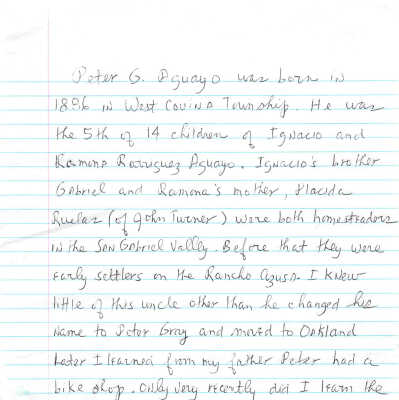 Peter G. Aguayo was born in
1896 in West Covina Township. He was
the 5th of 14 children of Ignacio and
Ramona Rarusuez Aguayo. Ignacio's brother
Gabriel and Ramona's mother, Placida
Ruelas (of John Turner) were both homesteaders
in the San Gabriel Valley. Before that they were
early settlers on the Rancho Azusa. I knew
little of this uncle other than he changed his
name to Peter Gray and moved to Oakland
Later I learned from my father Peter had a
bike shop. Only very recently did I learn the